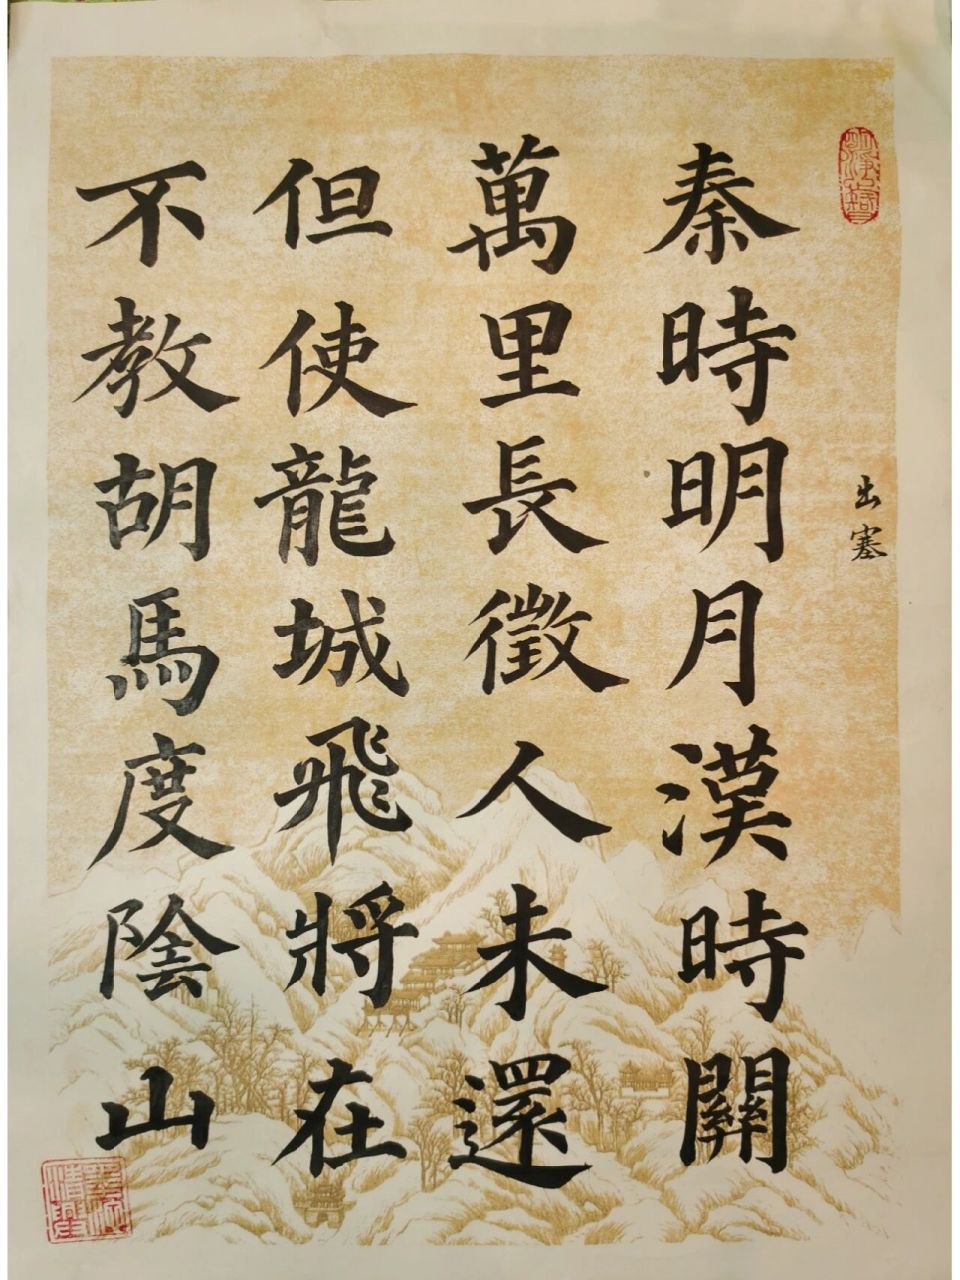 出塞
秦時明月漢時關
萬里長徵人未還
但使龍城飛將在
不教胡馬度陰山